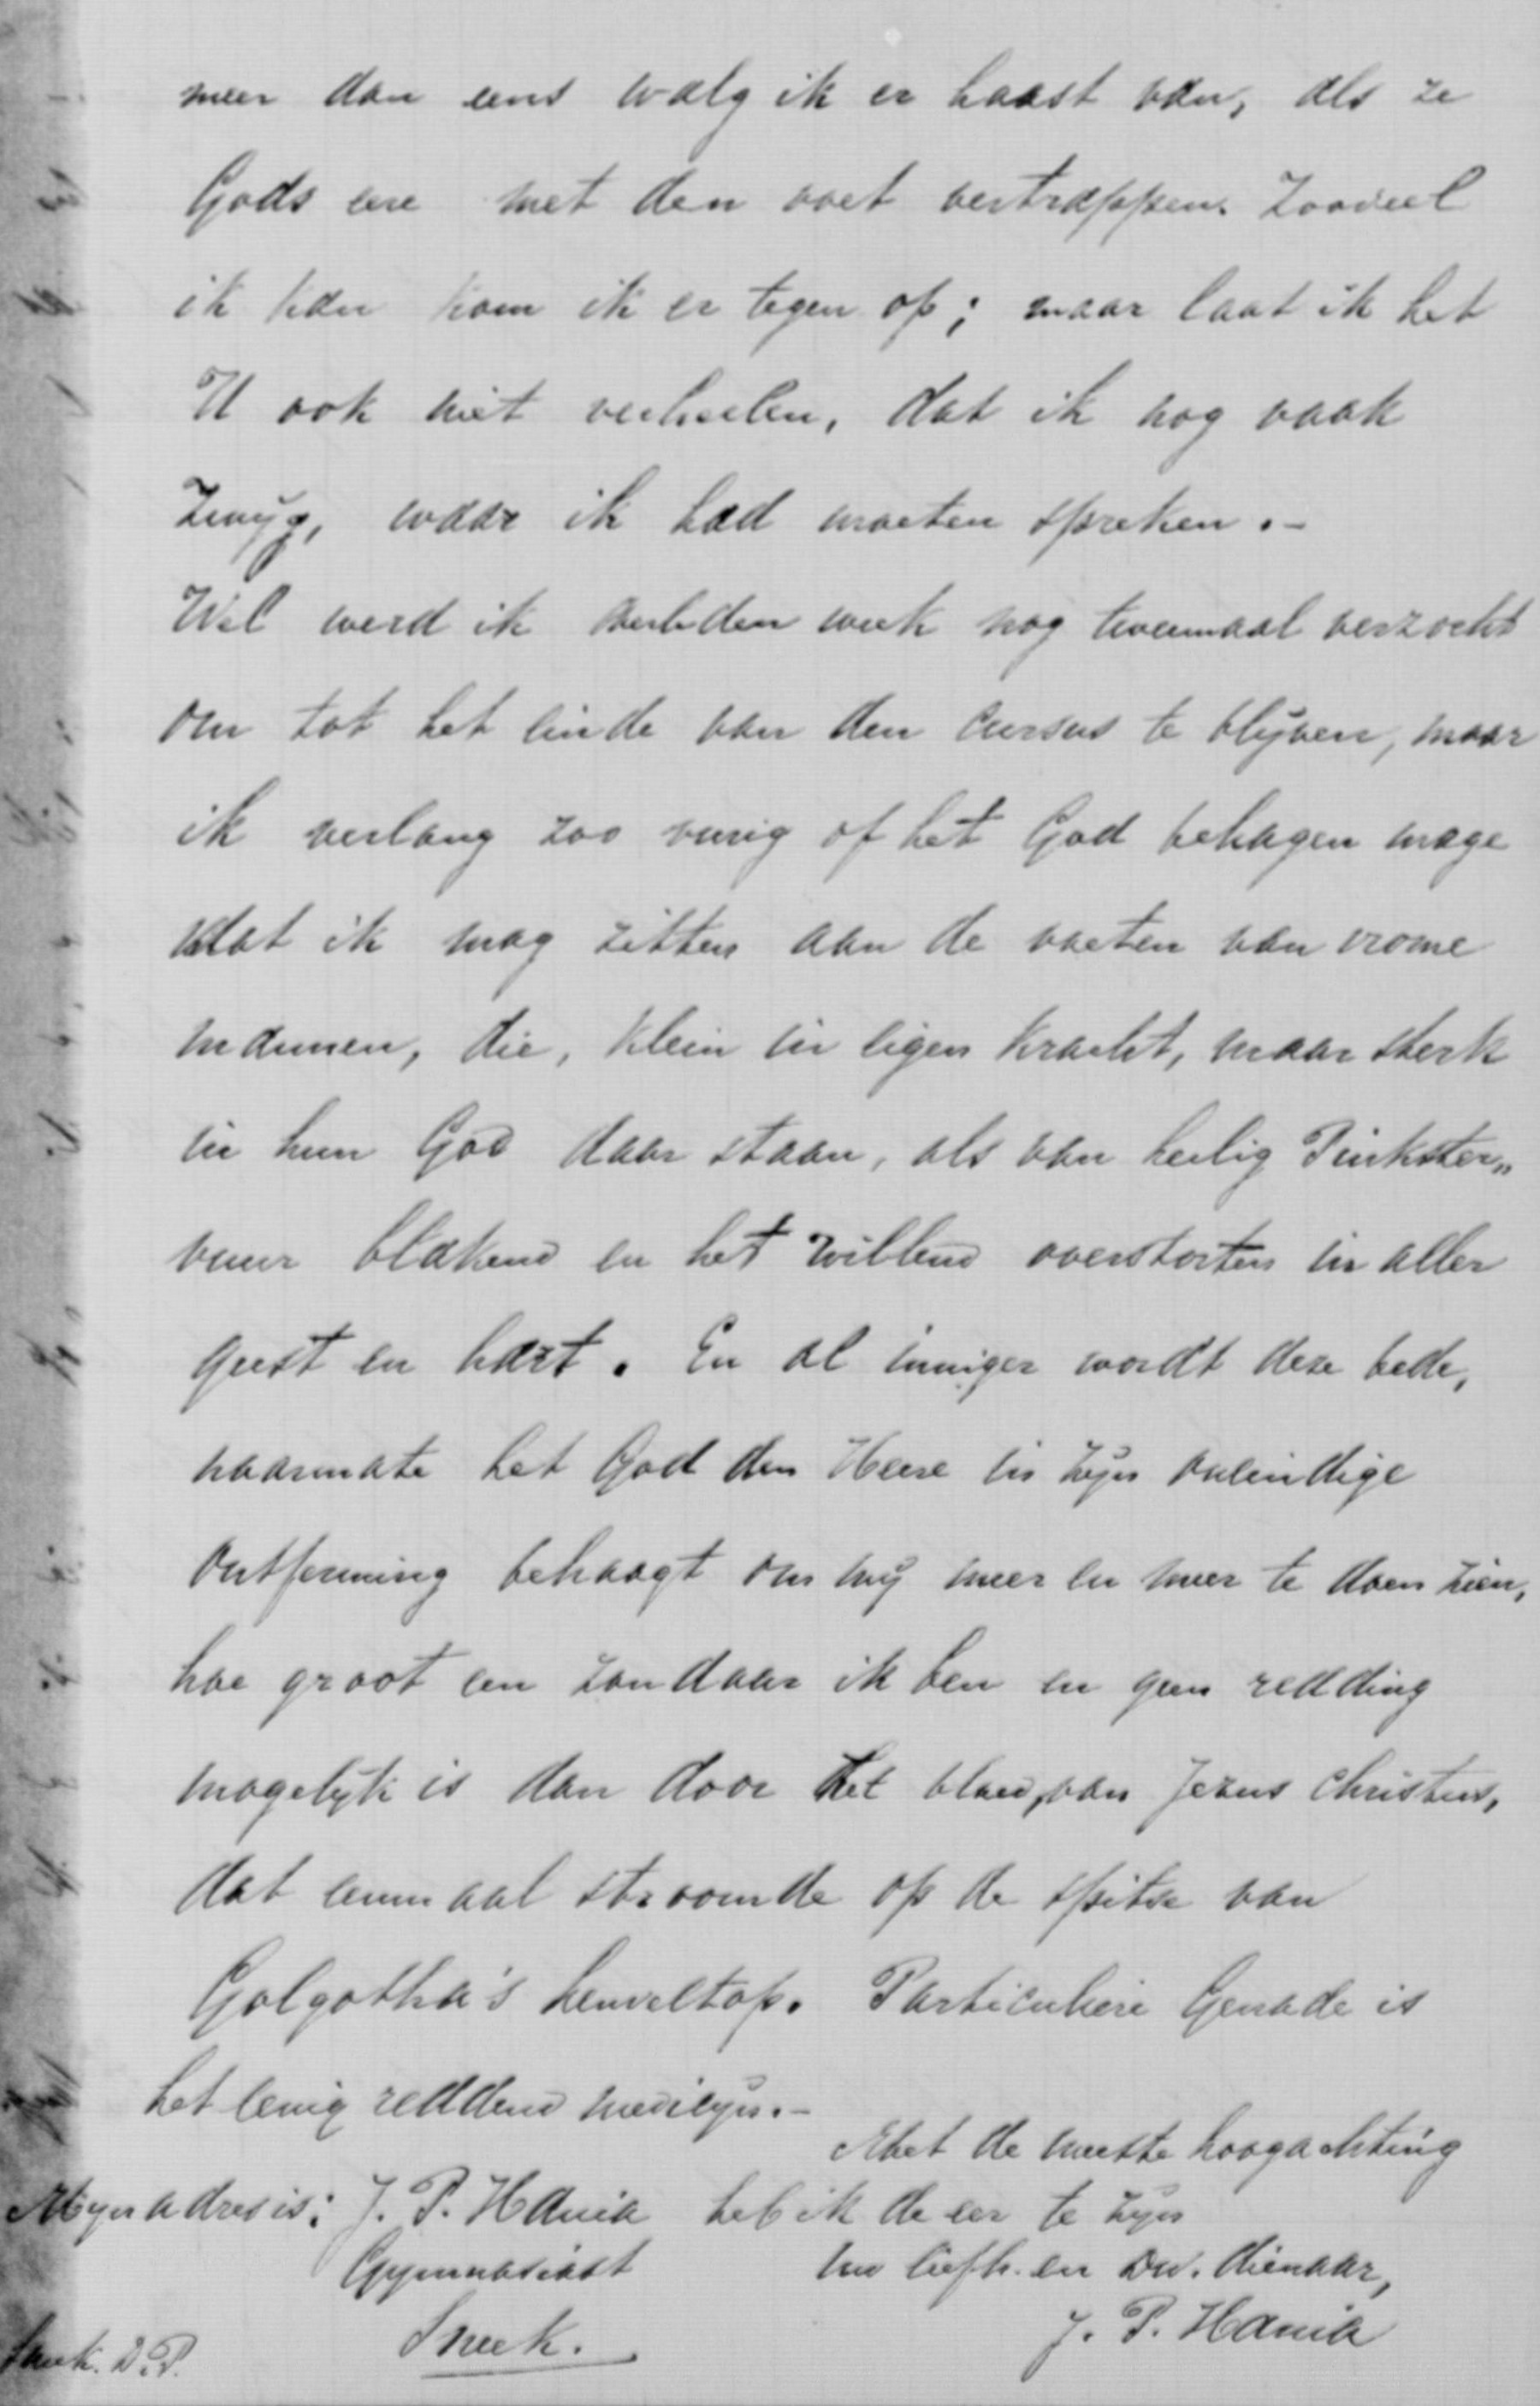 meer dan eens walg ik er haast van, als ze
Gods eere met den voet vertrappen. Zooveel
ik kan kom ik er tegen op; maar laat ik het
U ook niet verheelen, dat ik nog vaak
zwijg, waar ik had moeten spreken.-
Wel werd ik verleden week nog tweemaal verzocht
om tot het einde van den cursus te blijven, maar
ik verlang zoo vurig of het God behagen moge
dat ik mag zitten aan de voeten van vrome
mannen, die, klein in eigen kracht, maar sterk
in hun God daar staan, als van heilig Pinkster„
vuur blakend en het willend overstorten in aller
geest en hart. En al inniger wordt deze bede,
naarmate het God den Heere in zijn oneindige
ontferming behaagt om mij meer en meer te doen zien,
hoe groot een zondaar ik ben en geen redding
mogelijk is dan door het bloed, van Jezus Christus,
dat eenmaal stroomde op de spitse van
Golgotha's heuveltop. Particuliere Genade is
het eenig reddend medicijn.-
Met de meeste hoogachting
Mijn adres is: J. P. Hania heb ik de eer te zijn
Gymnasiast Uw liefh. en Dw. dienaar,
Sneek. J. P. Hania
D.P.